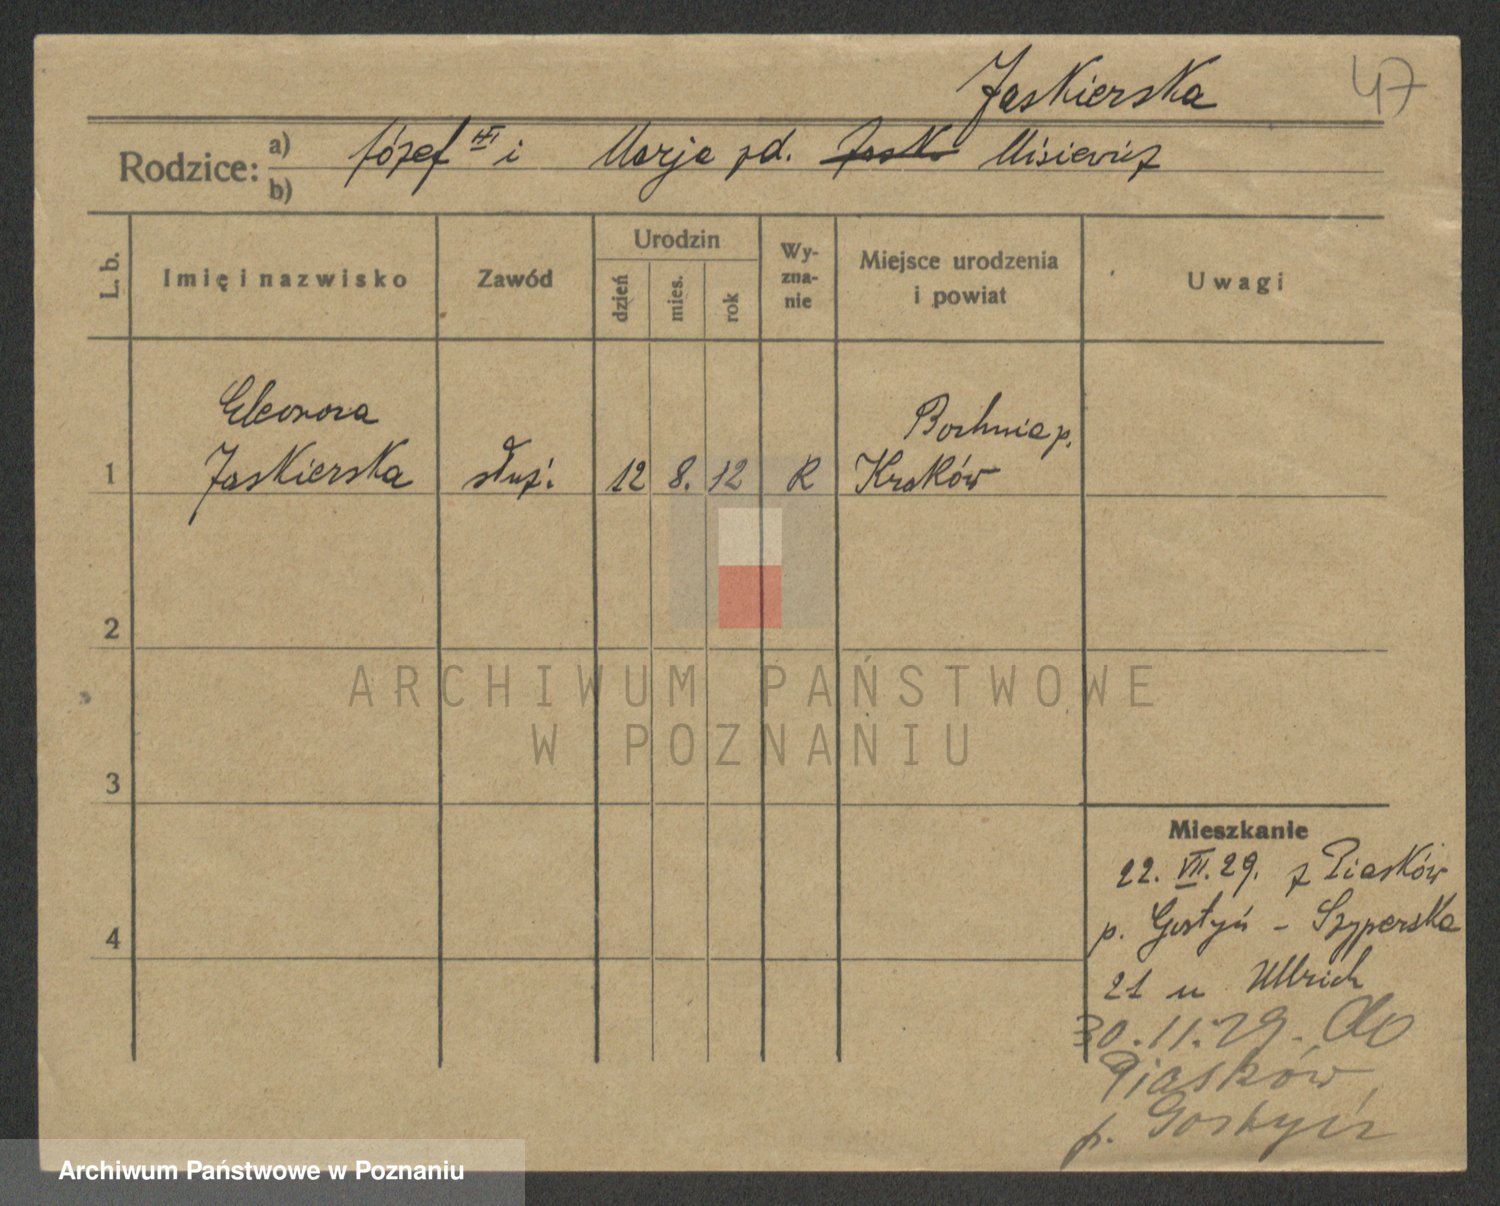 Jaskierska
47
Rodzice: a) Józef i Marja zd. Jask. Misiewicz
b)
L. b.
Imię i nazwisko
Zawód
Urodzin
dzień
mies.
rok
Wy-
zna-
nie
Miejsce urodzenia
i powiat
Uwagi
Eleonora
Bochnia p.
1 Jaskierska służ. 12 8. 12 R Kraków
2
3
4
ARCHIWUM PAŃSTWOWE
W POZNANIU
Mieszkanie
22. VII. 29. z Piasków
p. Gostyń - Szyperska
21 u Ullrich
30.11.29. do
Piasków
p. Gostyń
Archiwum Państwowe w Poznaniu